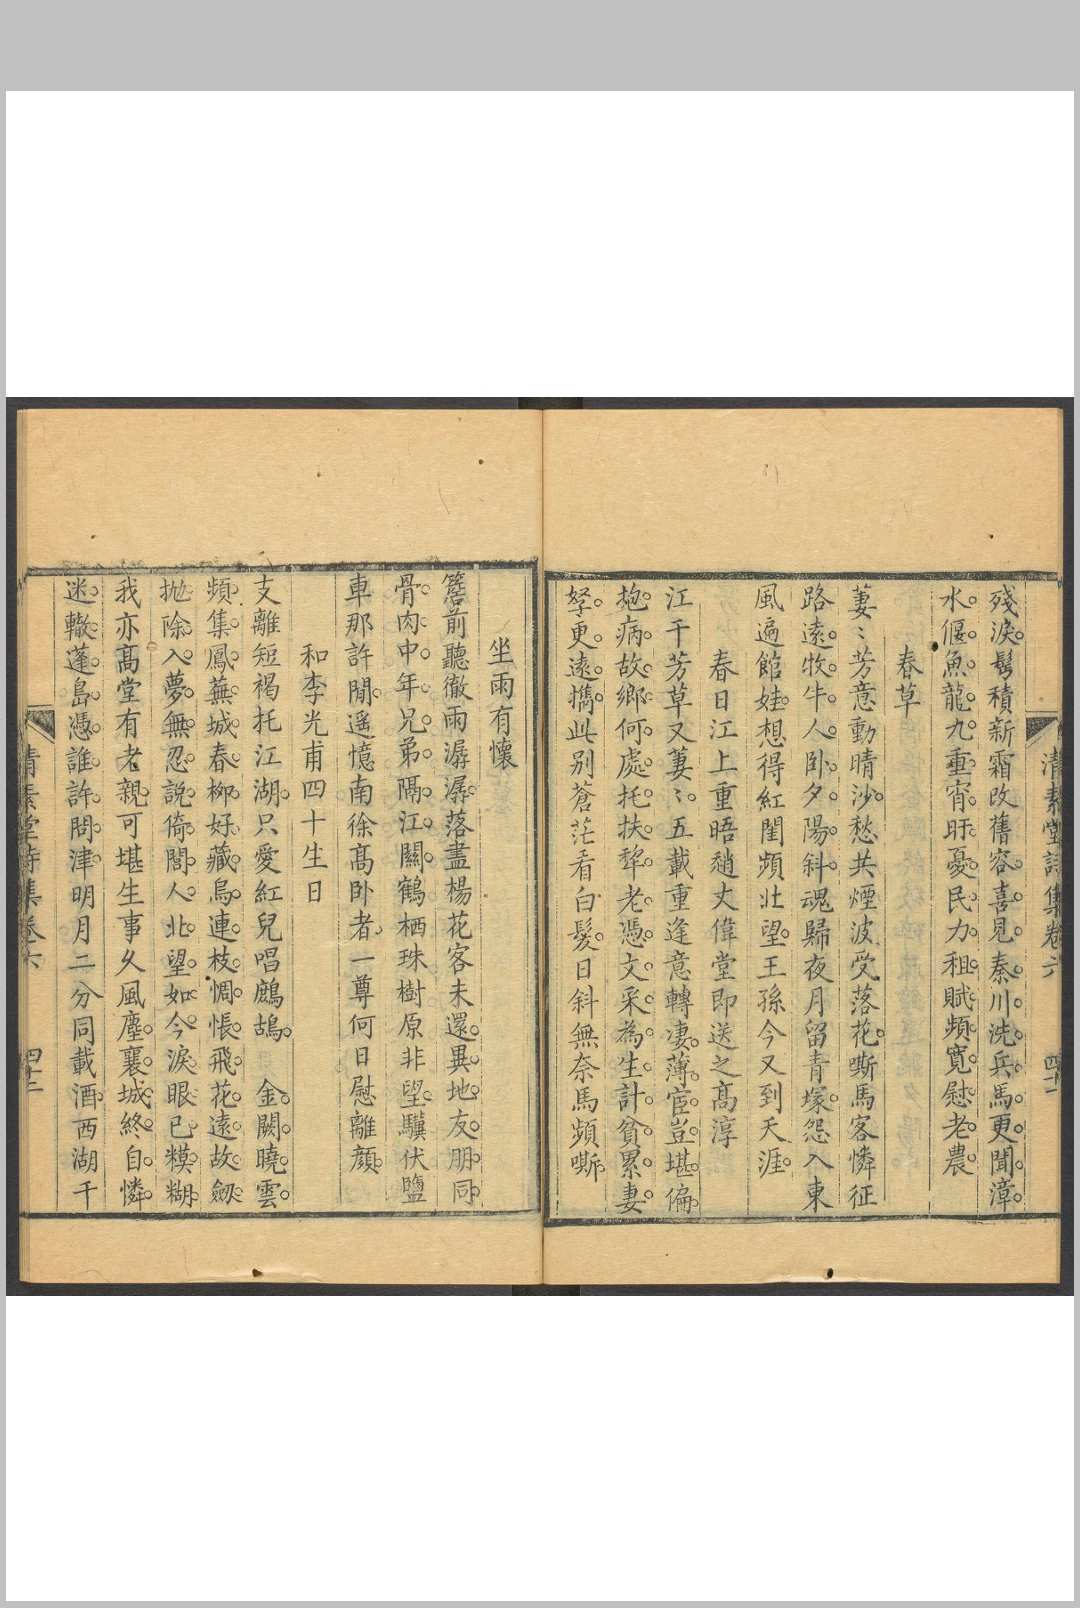 殘淚鬢積新霜改舊容喜見秦川洗兵馬更聞漳
水偃魚龍九重宵旰憂民力租賦頻寬慰老農
春草
萋〻芳意動晴沙愁共煙波受落花嘶馬客憐征
路遠牧牛人卧夕陽斜魂歸夜月留青塚怨入東
風遍館娃想得紅閨頻壯望王孫今又到天涯
春日江上重晤趙丈偉堂即送之髙淳
江干芳草又萋〻五載重逢意轉凄薄宦豈堪偏
抱病故鄉何處托扶犂老憑文采為生計貧累妻
孥更遠攜此別蒼茫看白髮日斜無奈馬頻嘶
清素堂詩集卷六 四十一
坐雨有懷
簷前聽徹雨潺潺落盡楊花客未還異地友朋同
骨肉中年兄弟隔江關鶴栖珠樹原非望驥伏鹽
車那許閒遥憶南徐髙卧者一尊何日慰離顔
和李光甫四十生日
支離短褐托江湖只愛紅兒唱鷓鴣 金闕曉雲
頻集鳳蕪城春柳好藏烏連枝惆悵飛花遠故劔
拋除入夢無忍說倚閭人北望如今淚眼已糢糊
我亦髙堂有老親可堪生事久風塵襄城終自憐
迷轍蓬島憑誰許問津明月二分同載酒西湖千
清素堂詩集卷六 四十二